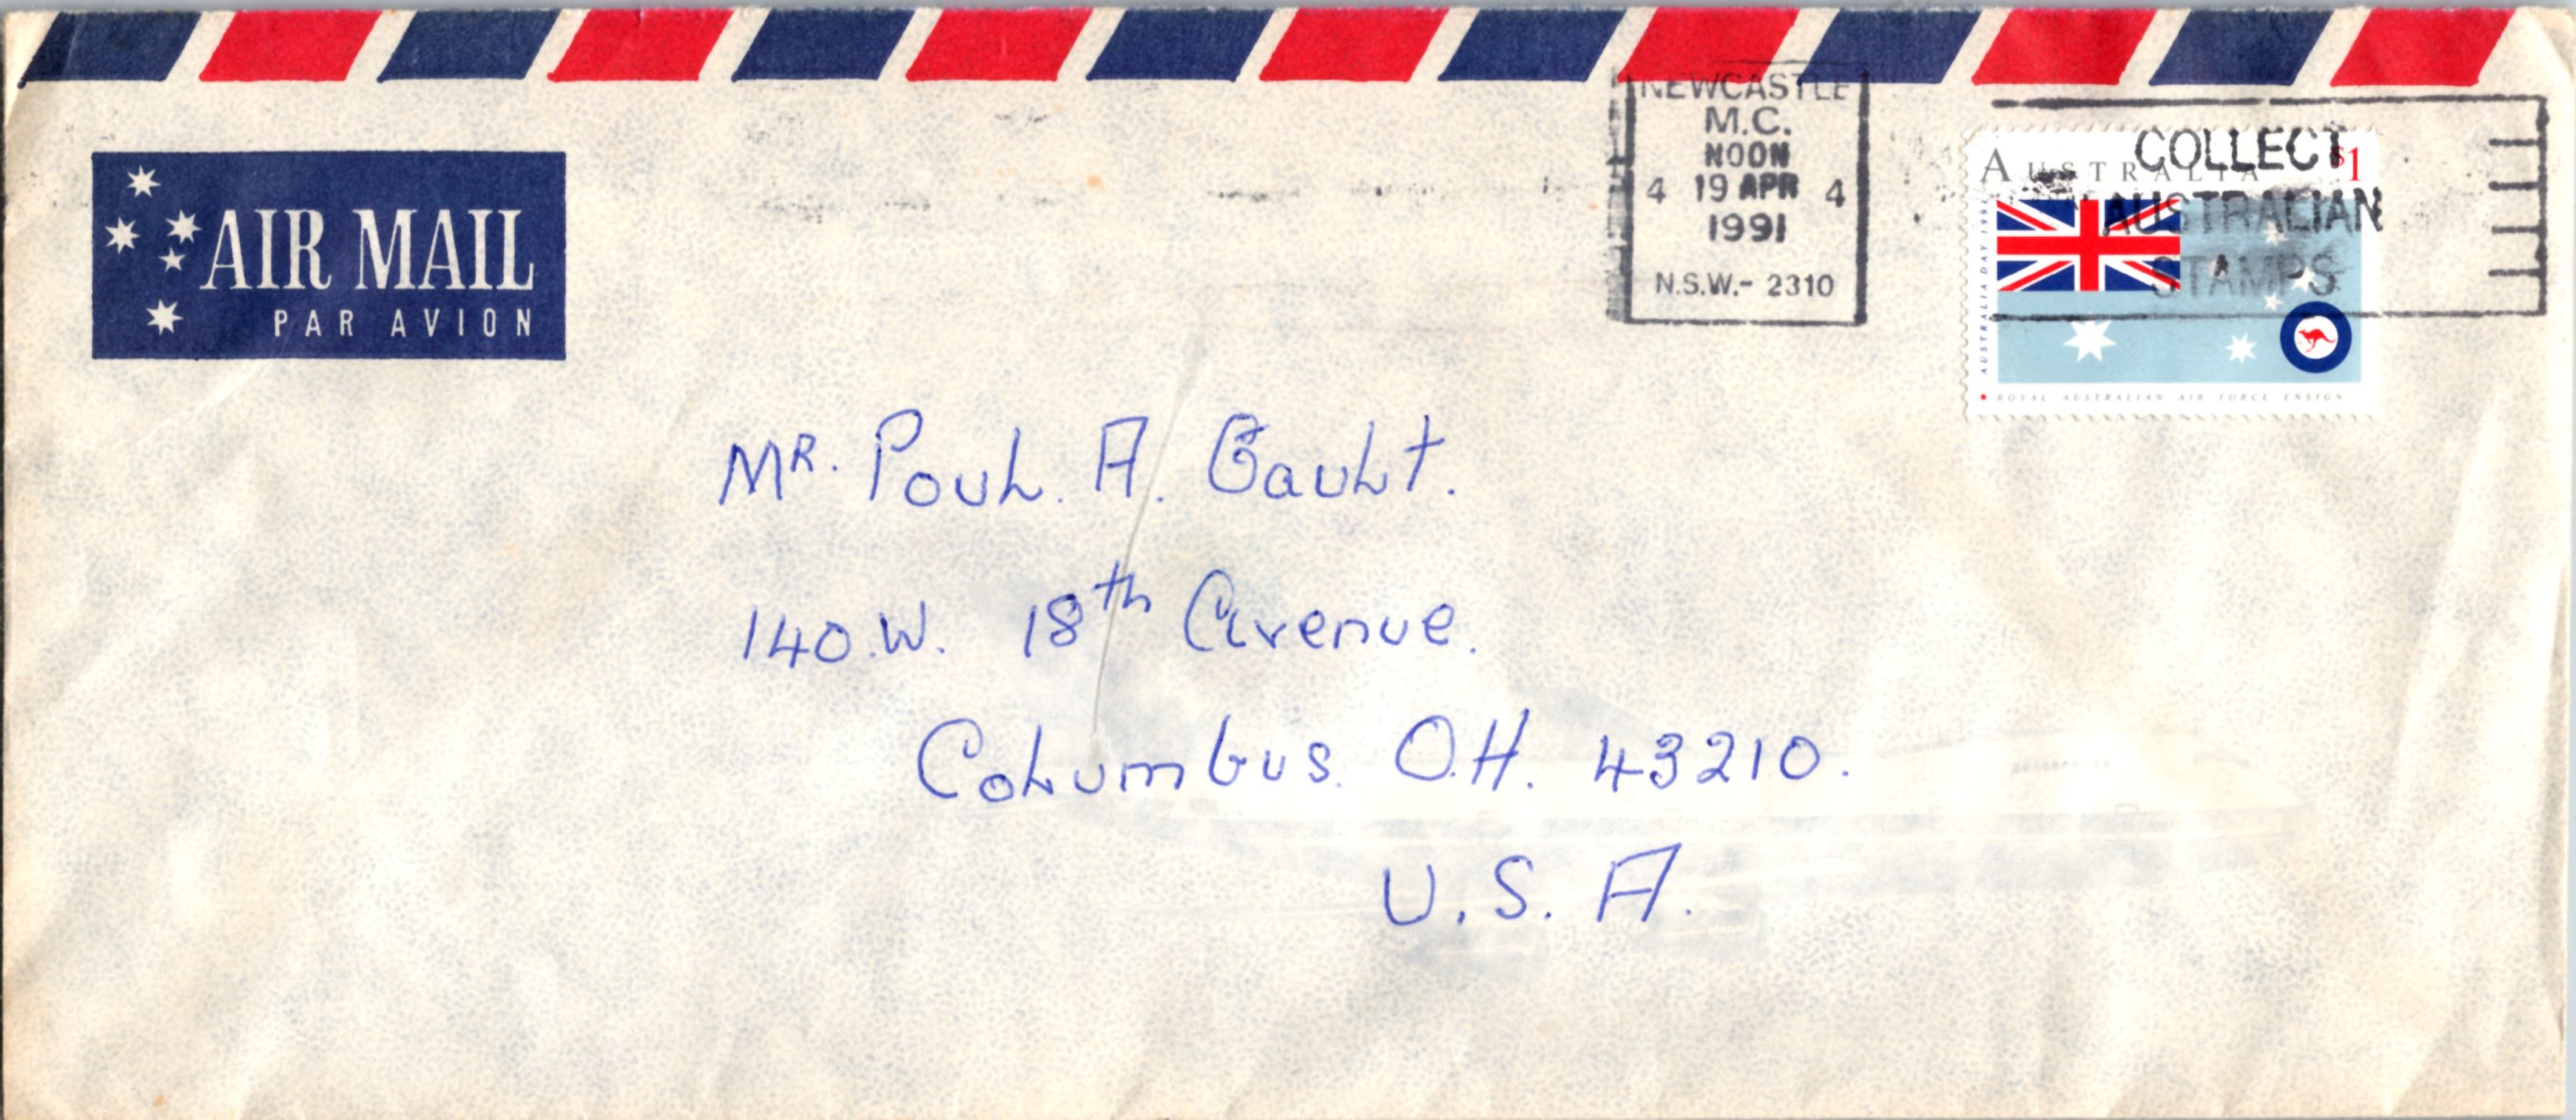 AIR MAIL
PAR AVION
NEWCASTLE
M.C.
NOON
4 19 APR 4
1991
N.S.W.- 2310
COLLECT
AUSTRALIAN
STAMPS
AUSTRALIA $1
AUSTRALIA DAY 1991
ROYAL AUSTRALIAN AIR FORCE ENSIGN
MR. Poul. A. Gault.
140.W. 18th Avenue.
Columbus. O.H. 43210.
U.S.A.